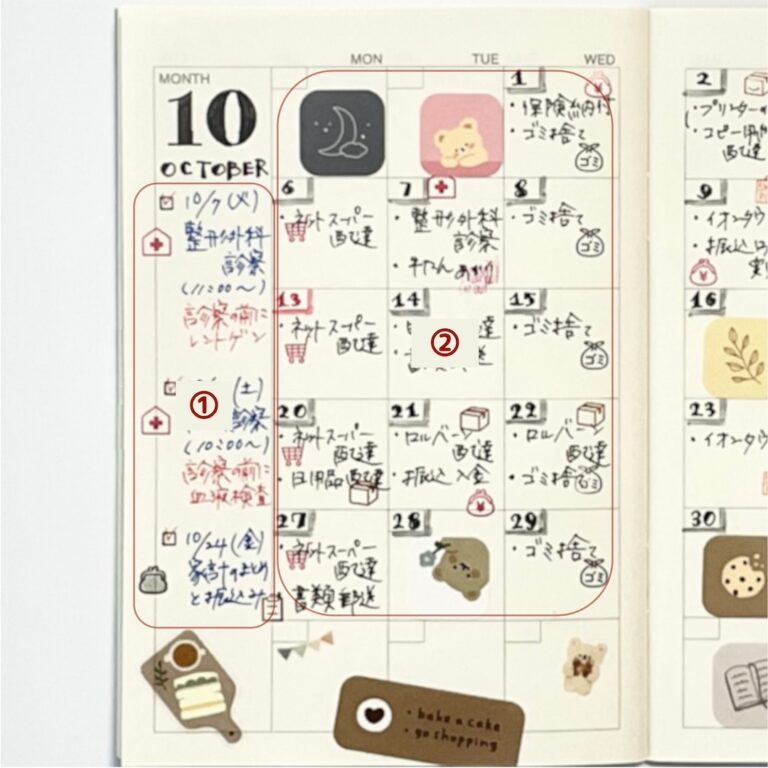 MON TUE WED
MONTH
10
OCTOBER
10/7 (火)
整形外科
診察
(11:00〜)
診察の前に
レントゲン
①
(土)
診察
(10:00〜)
診察の前に
血液検査
10/24 (金)
家計のまとめ
とお振込み
1
・保険納付
・ゴミ捨て
ゴミ
2
・プリンター
・コピー用
配達
6
・ネットスーパー
配達
7
・整形外科
診察
・牛たん
8
・ゴミ捨て
ゴミ
9
・イオンタウ
・お振込
13
・ネットスーパー
配達
14
②
達
送
15
・ゴミ捨て
ゴミ
16
20
・ネットスーパー
配達
・日用品配達
21
・ロルバーン
配達
・お振込 入金
22
・ロルバーン
配達
・ゴミ捨て
ゴミ
23
・イオンタウ
27
・ネットスーパー
配達
書類郵送
28
29
・ゴミ捨て
ゴミ
30
・bake a cake
・go shopping